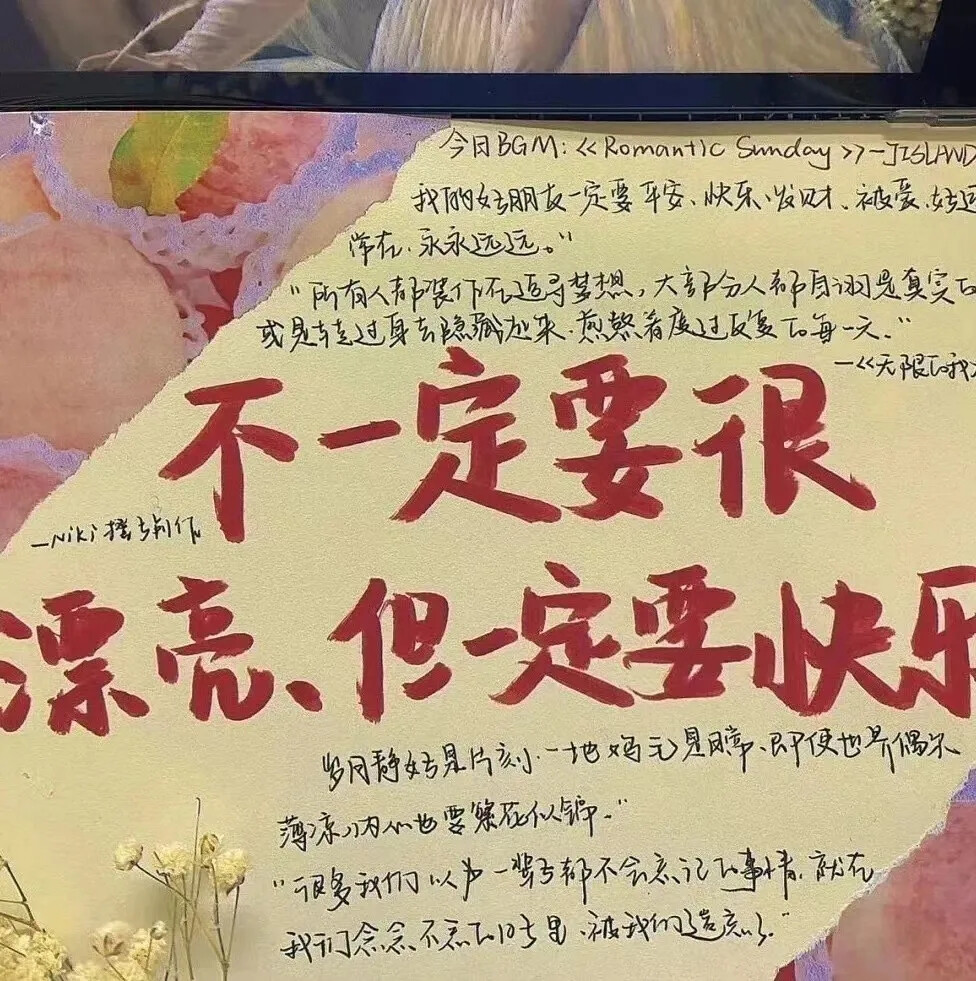 今日BGM:《Romantic Sunday》-JISLAND
我的好朋友一定要平安、快乐、发财、被爱、好运
常在、永永远远。"
"所有人都装作在追寻梦想,大部分人都自诩是真实的
或是转过身去隐藏起来、煎熬着度过反复的每一天。"
—《无限的我
不一定要很
—Niki搔首制作
漂亮、但一定要快乐
岁月静好是片刻、一地鸡毛是日常、即使世界偶尔
薄凉,内心也要繁花似锦。"
"很多我们以为一辈子都不会忘记的事情,就在
我们念念不忘的日子里,被我们遗忘了。"